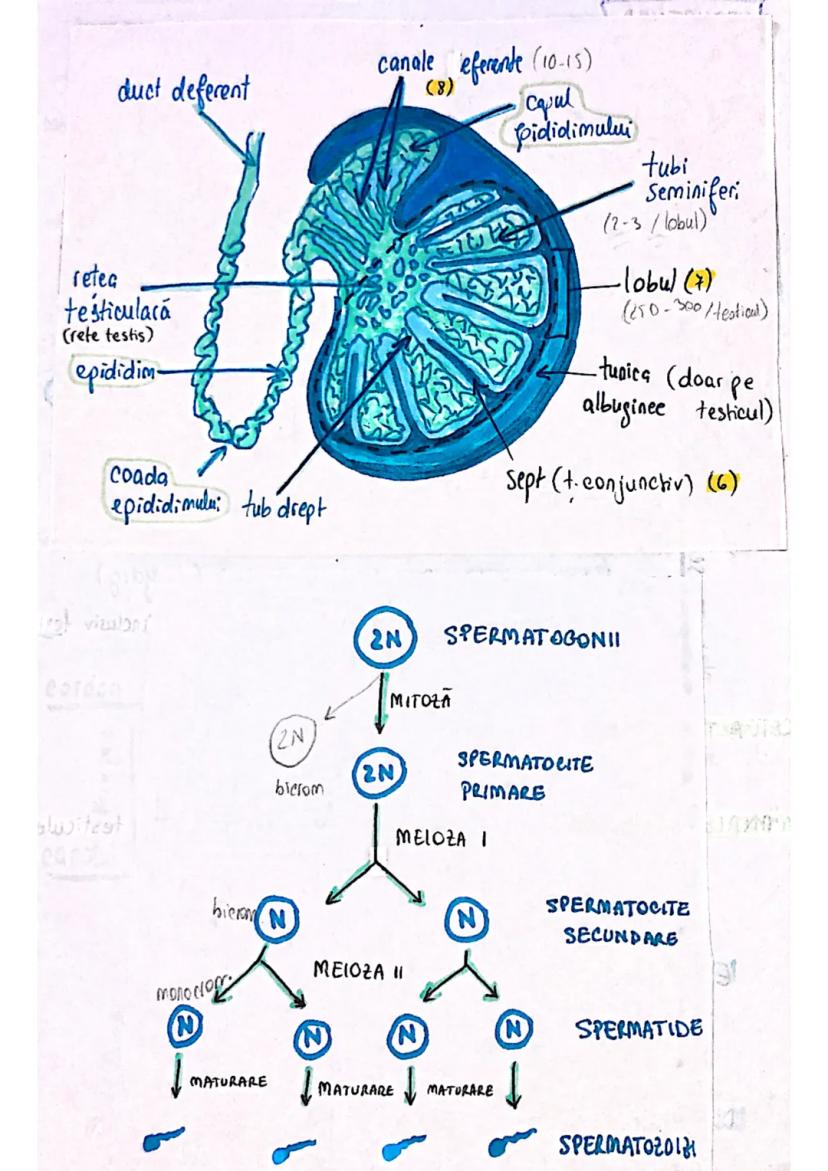 canale eferente (10-15)
(8)
duct deferent
capul
epididimului
tubi
seminiferi
(2-3 / lobul)
rețea
testiculară
(rete testis)
lobul (7)
(250-300/testicul)
epididim
tunica (doar pe
albuginee testicul)
coada
epididimului
tub drept
sept (ț. conjunctiv) (6)
2N
SPERMATOGONII
MITOZĂ
2N
bicrom
2N
SPERMATOCITE
PRIMARE
MEIOZA I
bicrom
N
N
SPERMATOCITE
SECUNDARE
MEIOZA II
monocrom.
N
N
N
N
SPERMATIDE
MATURARE
MATURARE
MATURARE
SPERMATOZOIZI
inclusiv